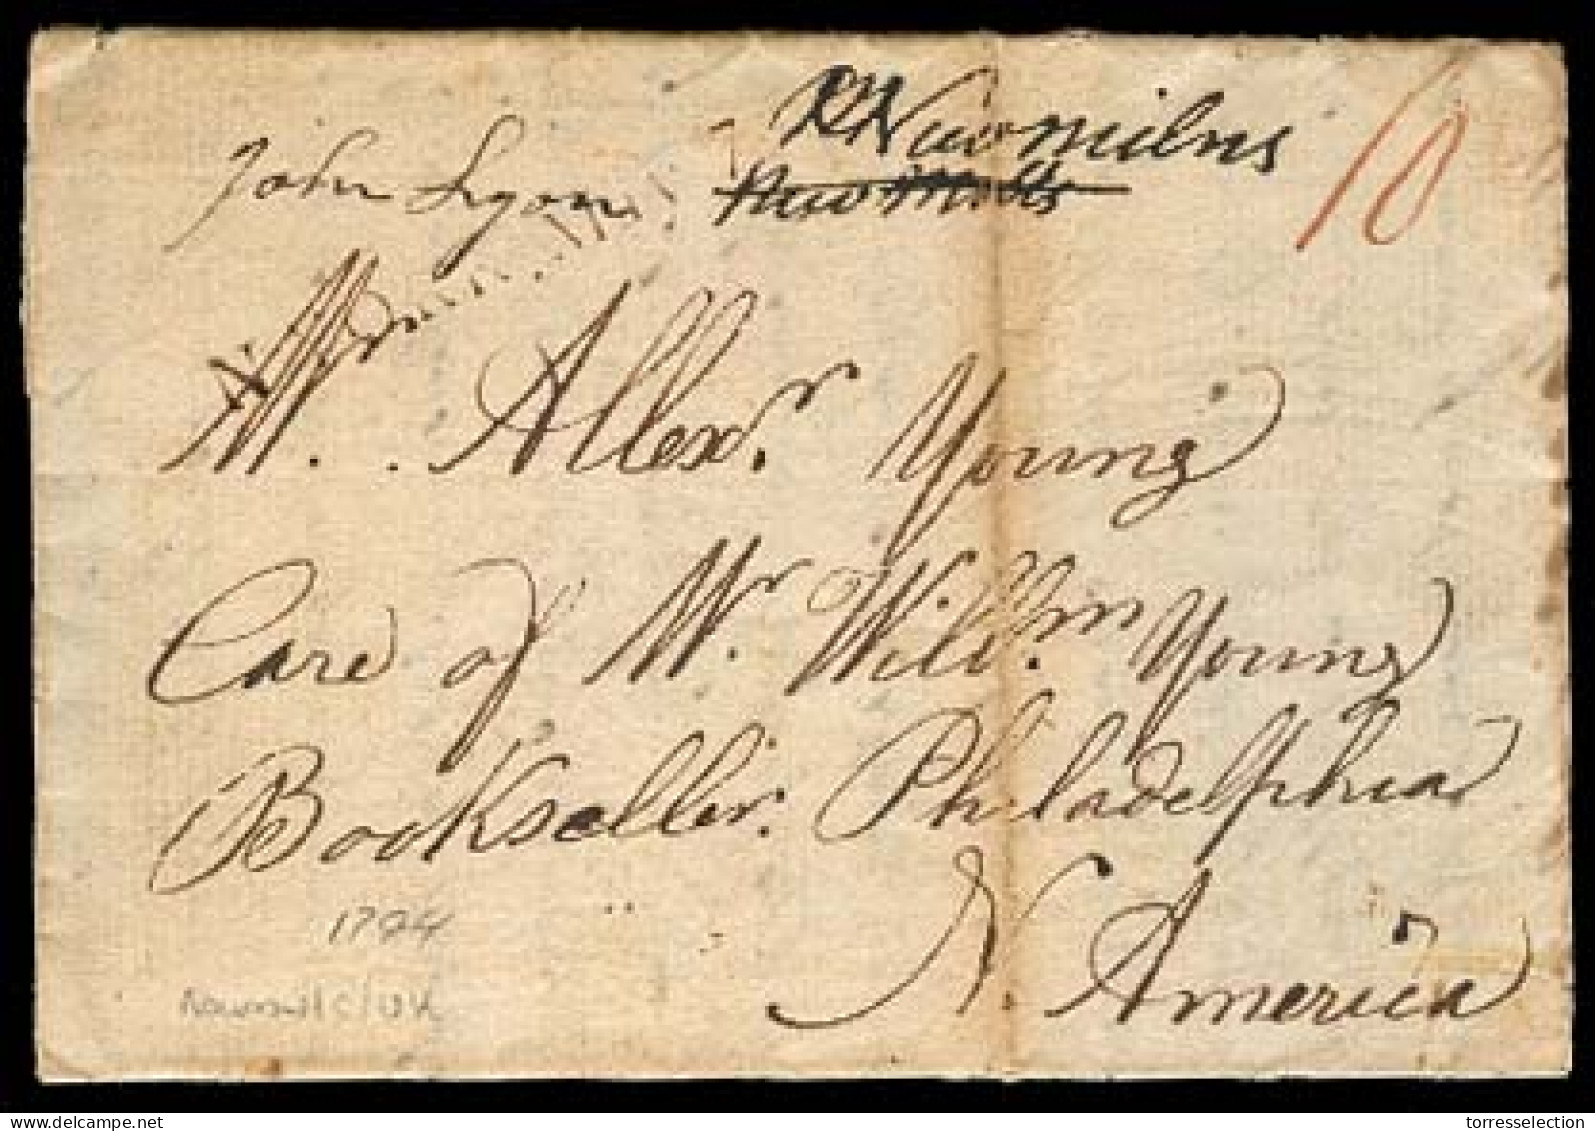 Newmilns
John Lyon
New Mills
10
NEWMILNS
Mr. Allexr. Young
Care of Mr. Willm. Young
Bookseller. Philadelphia
N. America
1794
www.delcampe.net
torresselection